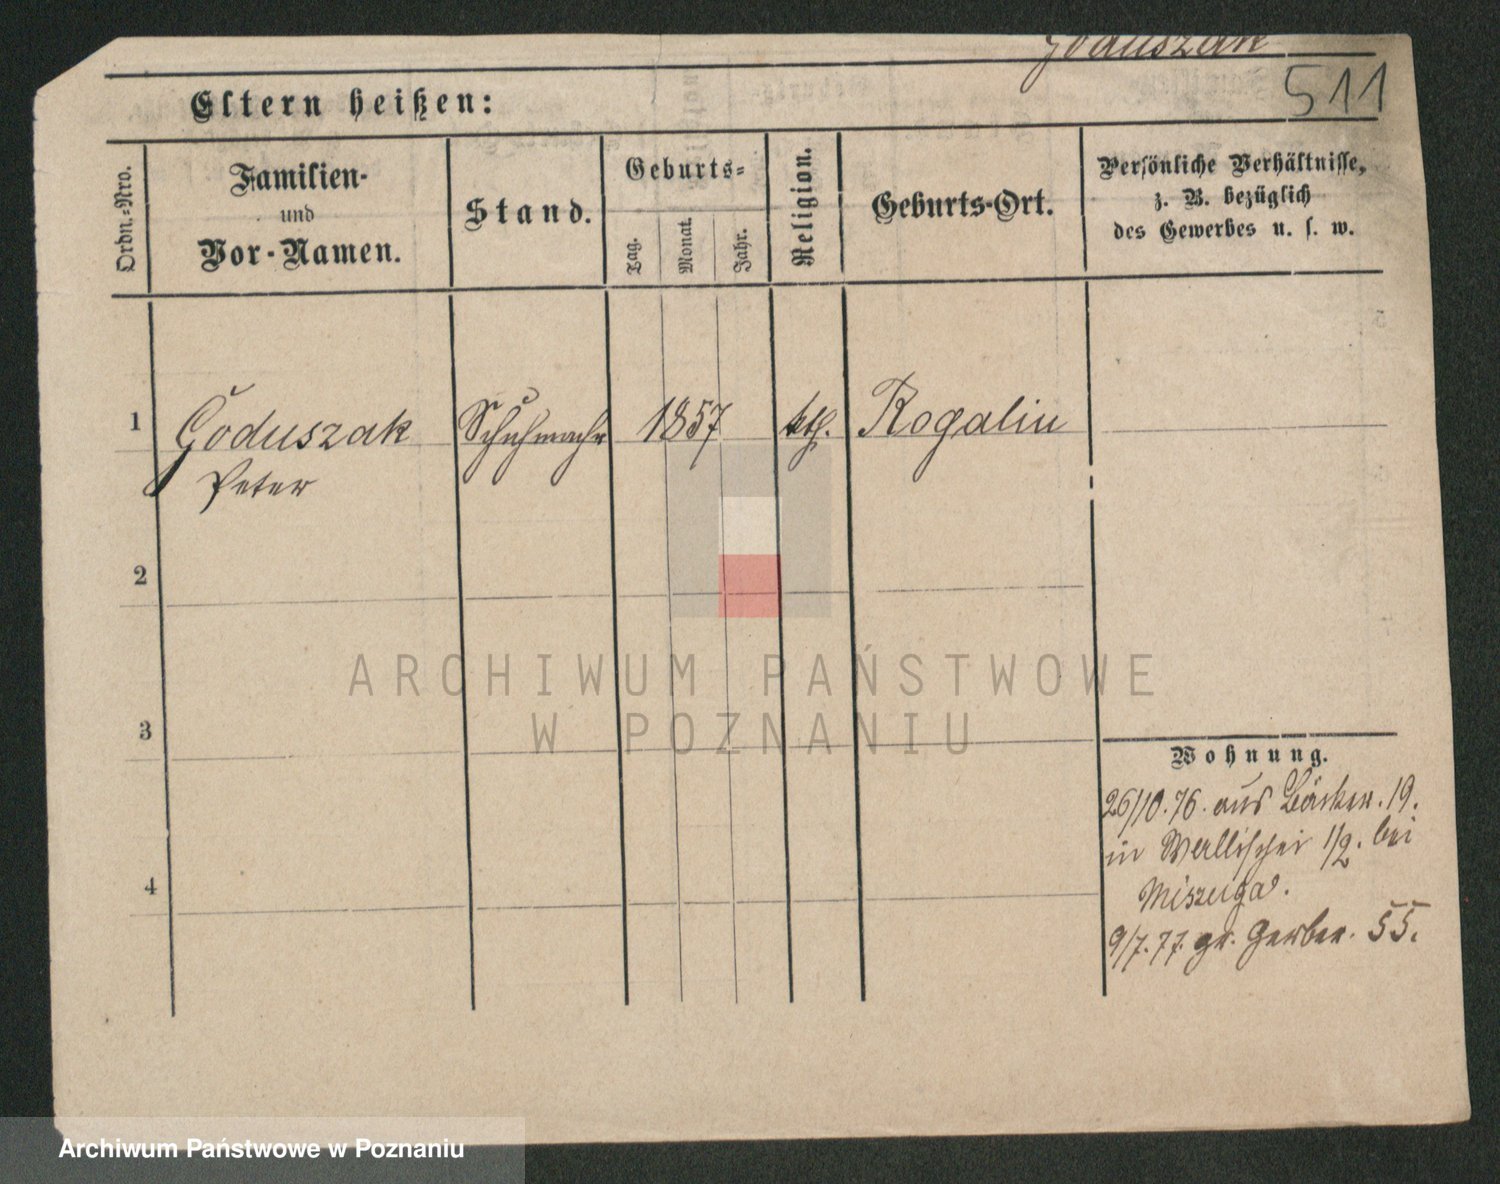 Goduszak
511
Eltern heißen:
Ordn.-Nro.
Familien-
und
Vor-Namen.
Stand.
Geburts-
Tag.
Monat.
Jahr.
Religion.
Geburts-Ort.
Persönliche Verhältnisse,
z. B. bezüglich
des Gewerbes u. s. w.
1
Goduszak
Peter
Schuhmachr
1857
kth.
Rogalin
2
3
4
Wohnung.
26/10.76. aus Bäcker. 19.
in Wallischei 1/2. bei
9/7.77. gr. Gerber. 55.
ARCHIWUM PAŃSTWOWE
W POZNANIU
Archiwum Państwowe w Poznaniu